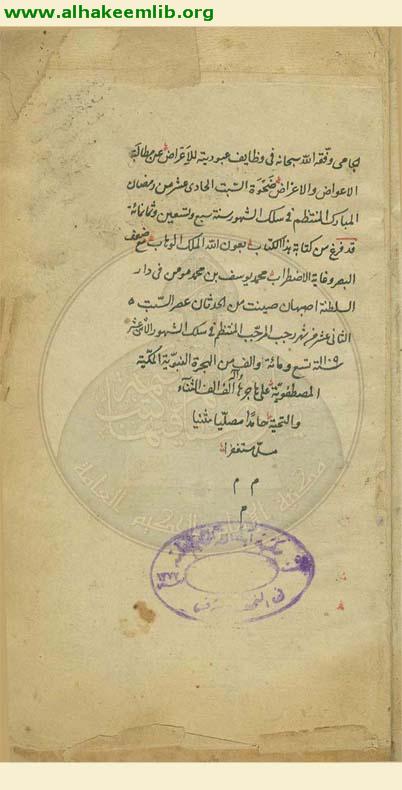 www.alhakeemlib.org
الجامى وفقه الله سبحانه فى وظايف عبوديته للاعراض عن مطالبة
الاعواض والاغراض ضحوة السبت الحادى عشر من رمضان
المبارك المنتظم فى سلك الشهور سنة سبع وتسعين وثمانمائة
قد فرغ من كتابة هذا الكتاب بعون الله الملك الوهاب مع ضعف
البصر وغاية الاضطراب محمد يوسف بن محمد مومن فى دار
السلطنة اصبهان صينت من الحدثان عصر السبت ٥
الثانى عشر من شهر رجب المرجب المنتظم فى سلك الشهور
١١٠٩ سنة تسع ومائة والف من الهجرة النبوية المكية
المصطفوية على هاجرها الف الف الثناء
والتحية حامدا مصليا مثنيا
مستغفرا
م م
م
١٣٧٧